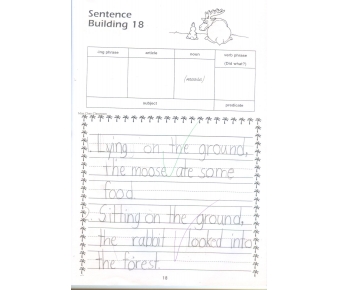 Sentence
Building 18
-ing phrase article noun verb phrase
(Did what?)
(moose)
subject predicate
1. Lying on the ground,
the moose ate some
food.
2. Sitting on the ground,
the rabbit looked into
the forest.
18